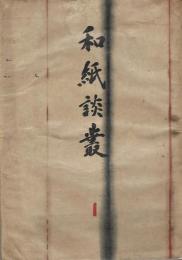 和紙談叢